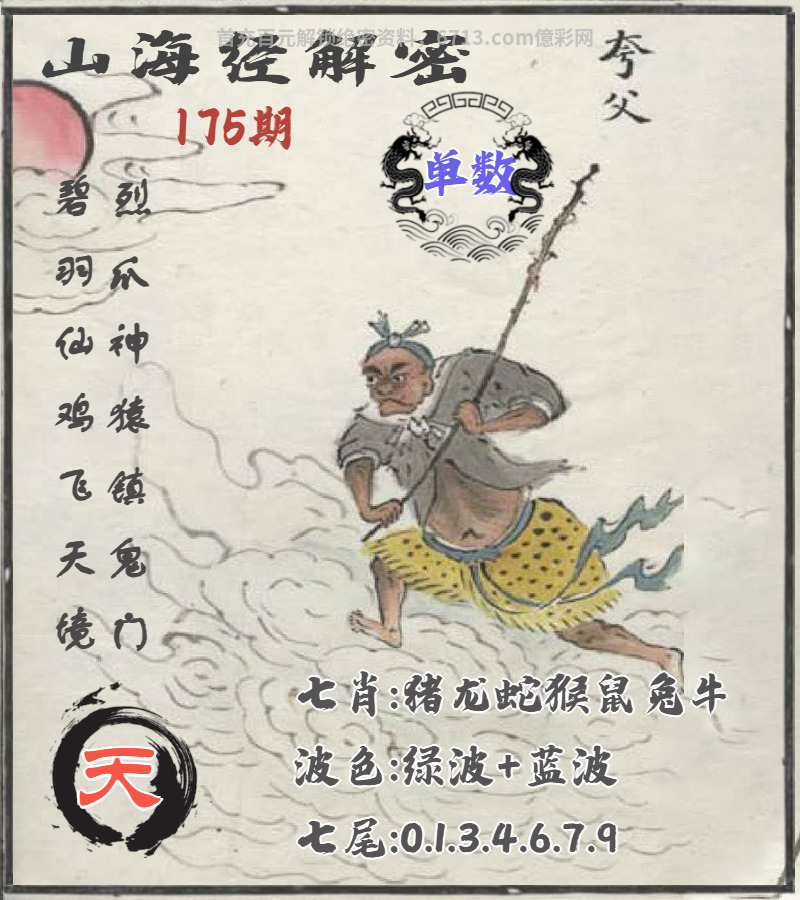 首充百元解锁绝密资料：6713.com億彩网
山海经解密
夸父
175期
单数
烈爪神猿镇鬼门
碧羽仙鸡飞天境
七肖:猪龙蛇猴鼠兔牛
天
波色:绿波+蓝波
七尾:0.1.3.4.6.7.9